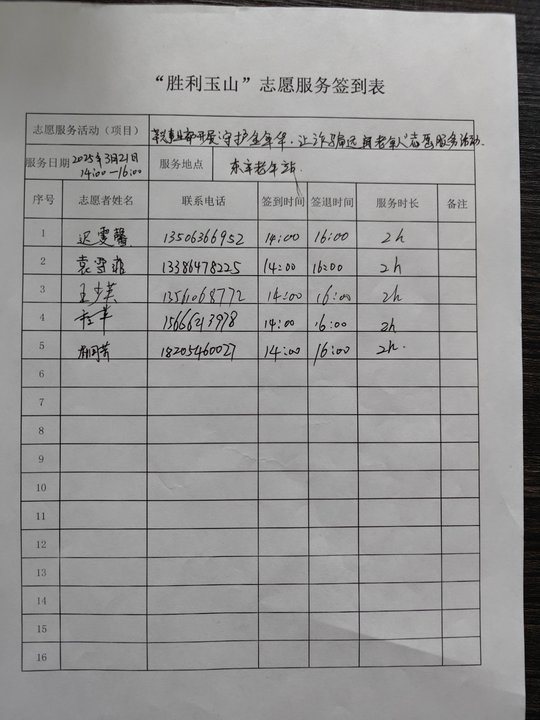 “胜利玉山”志愿服务签到表
志愿服务活动（项目） 开展“守护金年华，让诈骗远离老年人”志愿服务活动.
服务日期 2025年3月21日 14:00—16:00 服务地点 东辛老年站
序号 志愿者姓名 联系电话 签到时间 签退时间 服务时长 备注
1 迟雯馨 13506366952 14:00 16:00 2h
2 袁雪菲 13386478225 14:00 16:00 2h
3 王少英 13561068772 14:00 16:00 2h
4 15666213978 14:00 16:00 2h
5 18205460027 14:00 16:00 2h.
6
7
8
9
10
11
12
13
14
15
16